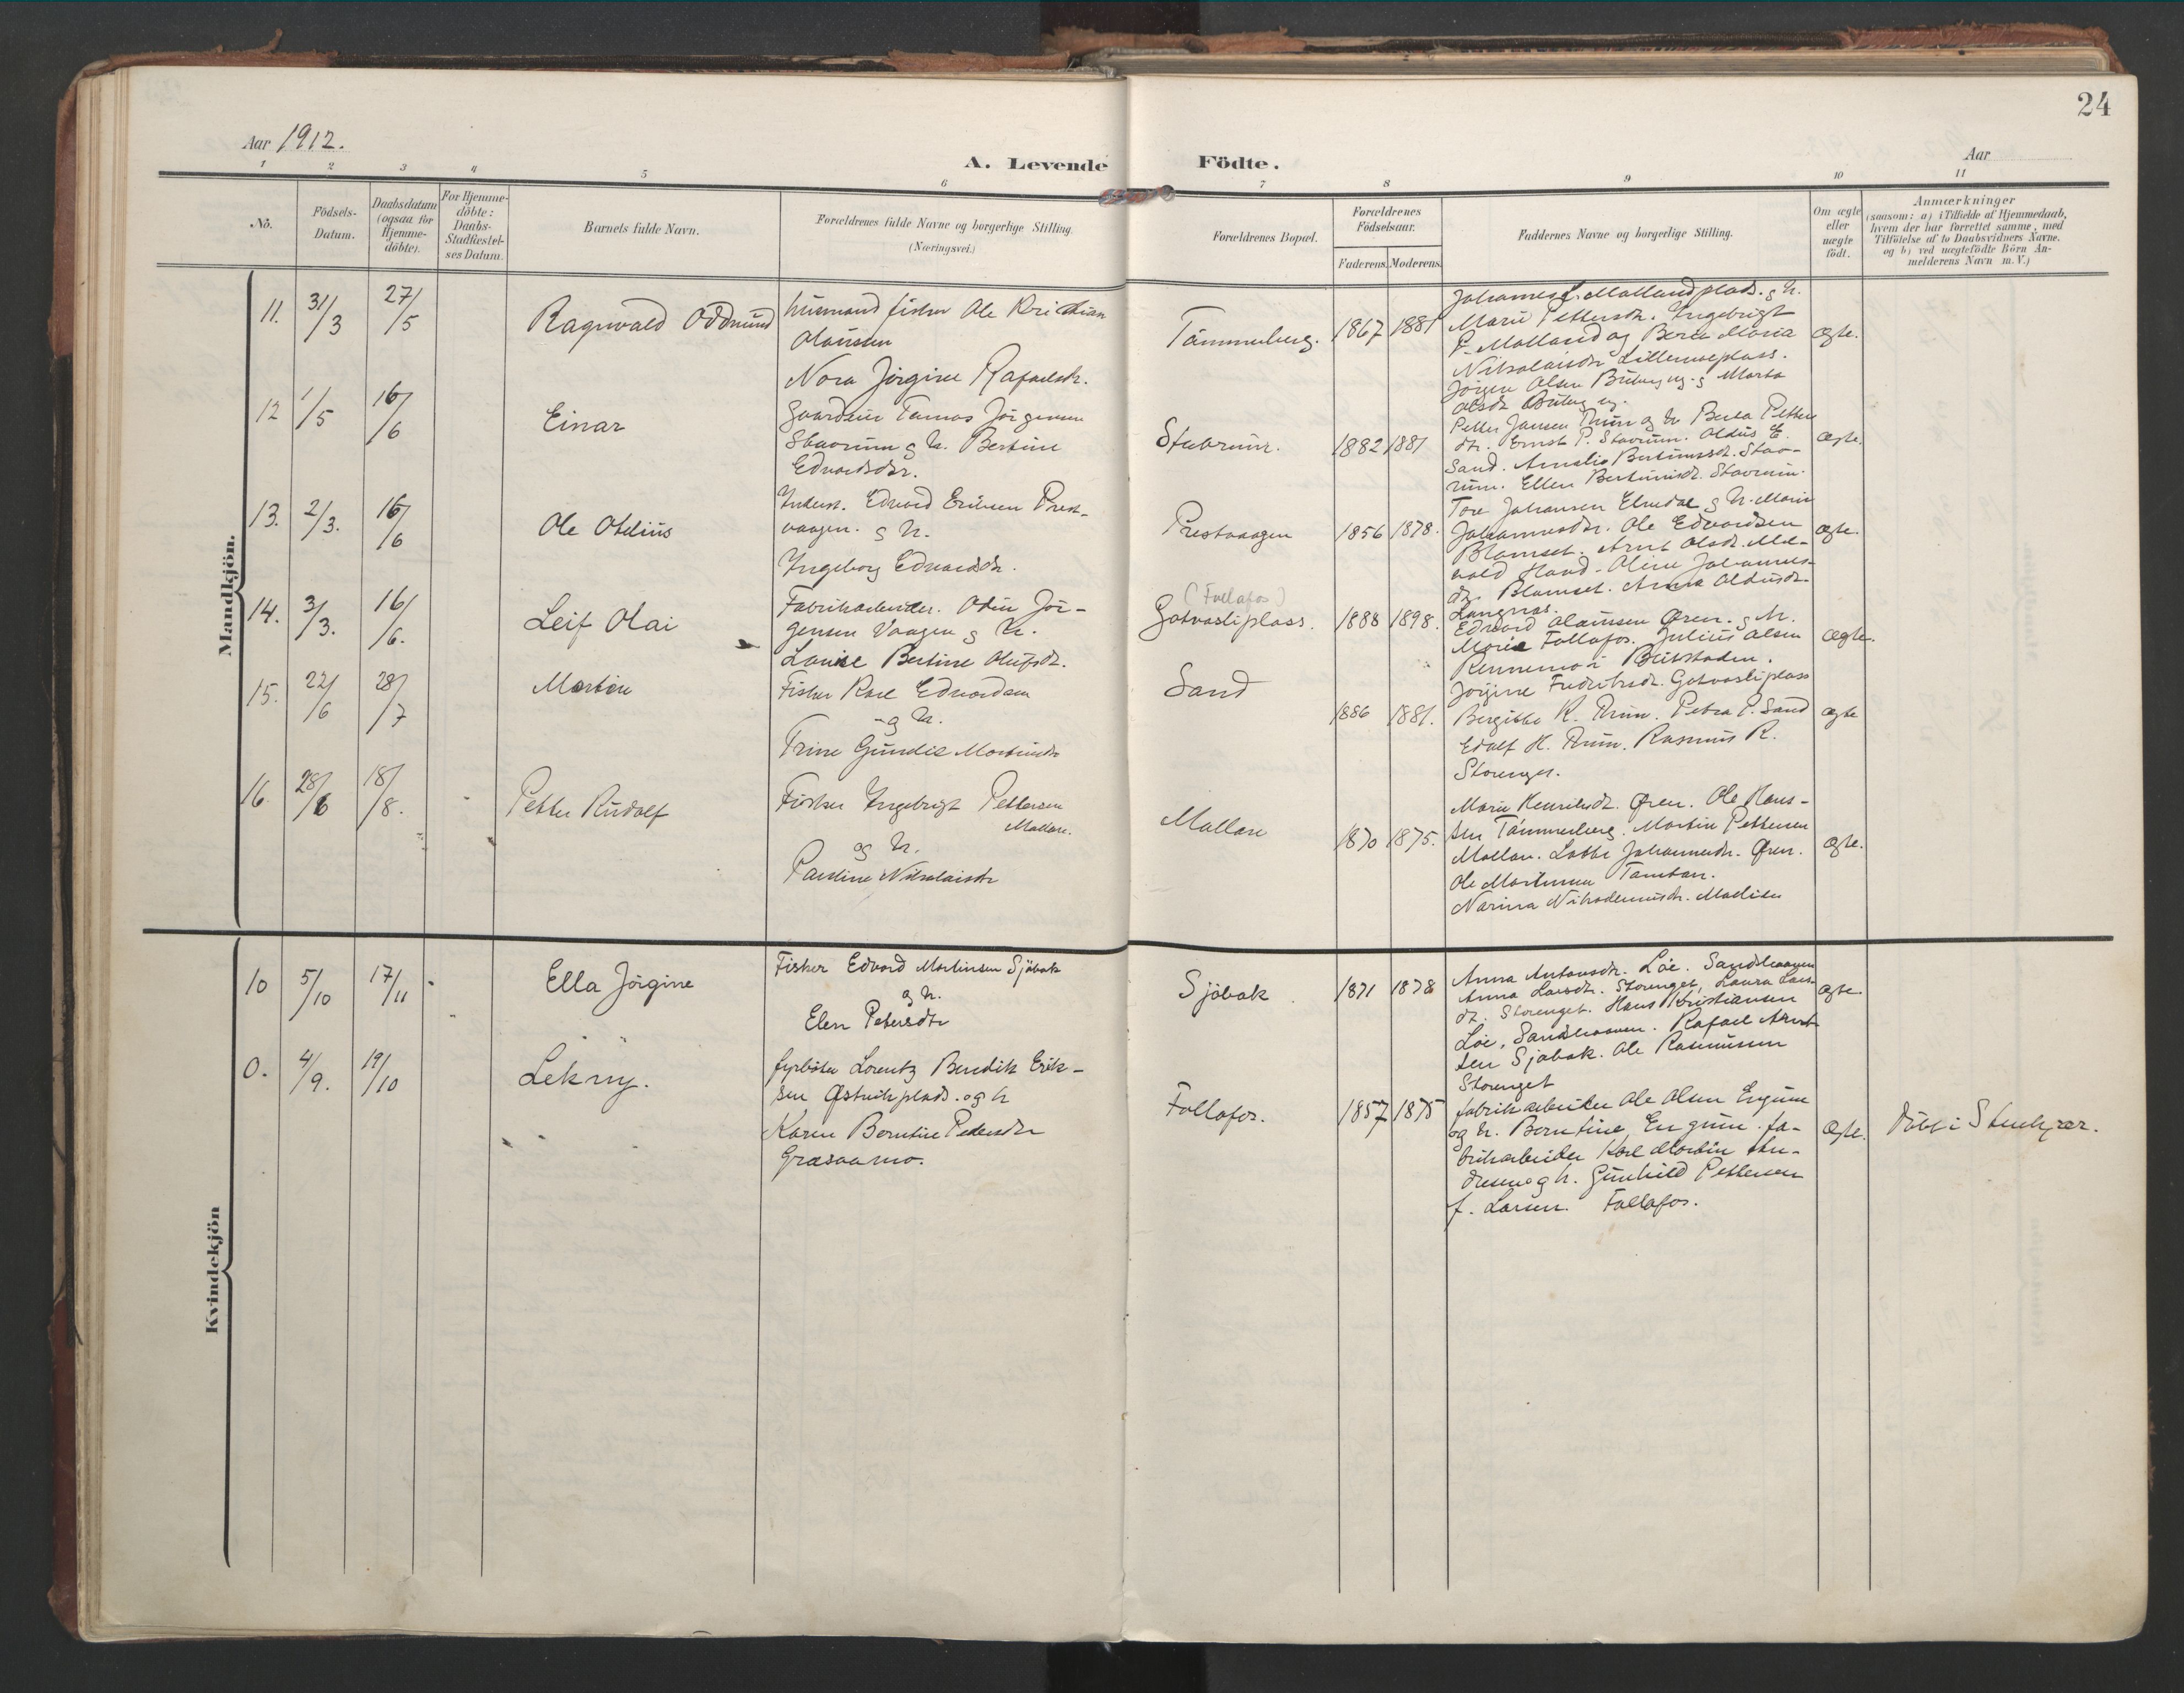 24
Aar 1912.
A. Levende Födte.
Aar
1 2 3 4 5 6 7 8 9 10 11
No.
Födsels-
Datum.
Daabsdatum
(ogsaa for
Hjemme-
döbte).
For Hjemme-
döbte:
Daabs-
Stadfæstel-
ses Datum.
Barnets fulde Navn.
Forældrenes fulde Navne og borgerlige Stilling.
(Næringsvei.)
Forældrenes Bopæl.
Forældrenes
Födselsaar.
Faderens. Moderens.
Faddernes Navne og borgerlige Stilling.
Om ægte
eller
uægte
födt.
Anmærkninger
(saasom: a) i Tilfælde af Hjemmedaab,
hvem der har forrettet samme, med
Tilföielse af to Daabsvidners Navne.
og b) ved uægtefödte Börn An-
melderens Navn m. V.)
Mandkjön.
11. 31/3 27/5 Ragnvald Oddmund
husmand fisker Ole Kristian
Olaussen
Nora Jörgine Rafaelsdr.
Tömmerberg. 1867 1881
Johannes L. Mollandplads. g h.
Marie Pettersdr. Ingebrigt
P. Molland og Berit Maria
Nikolaisdr Lillemoplass.
Jörgen Olsen og Marta
Olsdr
ægte.
12 1/5 16/6 Einar
Gaardbr Tomas Jörgensen
Stavrum g h. Bertine
Edvardsdr.
Stavrum. 1882 1881
Petter Jansen Thun og h Berta Petters
dr. Ernst P. Stavrum. Oldus E.
Sand. Amalie Bertinusdr. Stav-
rum. Ellen Bertinusdr. Stavrum.
ægte.
13. 2/3. 16/6 Ole Otelius
Inderst. Edvard Eriksen Prest-
vaagen. g h.
Ingeborg Edvardsdr.
Prestvaagen 1856 1878.
Tore Johansen Elnedal g h. Marie
Johannesdr. Ole Edvardsen
Blomset. Arnt Olsdr.
Oline Johannes-
dr. Blomset. Anna Oldusdr.
Langnes.
ægte.
14. 3/3. 16/6. Leif Olai
Fabrikarbeider. Odin Jör-
gensen Vaagen g h.
Louise Bertine Olufsdr.
(Follafos)
Gotvasliplass. 1888 1898.
Edvard Olaussen Ören. g h.
Marie Follafos. Julius Olsen
Rennemo i Beitstaden.
Jörgine Fredriksdr. Gotvasliplass
ægte.
15. 22/6 28/7 Martin
Fisker Karl Edvardsen
og h.
Trine Gundie Martinsdr
Sand 1886 1881.
Bergitte K. Thun. Petra P. Sand
Edolf H. Thun. Rasmus R.
Storenget.
ægte
16. 28/6 18/8. Petter Rudolf
Fisker Ingebrigt Pettersen
Mollan.
og h.
Pauline Nikolaisdr
Mollan 1870 1875.
Marie Henriksdr. Ören. Ole Hans-
sen Tömmerberg. Martin Pettersen
Mollan. Lotte Johannesdr. Ören.
Ole Martinsen
Narina Nikodemusdr.
ægte.
Kvindekjön
10 5/10 17/11 Ella Jörgine
Fisker Edvard Martinsen Sjöbak
og h.
Elen Petersdtr
Sjöbak 1871 1878
Anna Antonsdr. Löe. Sandshaaven
Anna Larsdr. Storenget, Laura Lars-
dr. Storenget. Hans Kristiansen
Löe, Sandshaaven. Rafael Arnt-
sen Sjöbak. Ole Rasmussen
Storenget
ægte.
0. 4/9. 19/10 Lekny.
fyrböter Lorentz Bendik Erik-
sen Östvikplads. og h
Karen Berntine Pedersdtr
Græsaamo.
Follafos. 1857 1875
fabrikarbeider Ole Olsen Engum
og h. Berntine Engum. fa-
brikarbeider Karl Martin An-
dresen og h. Gunhild Pettersen
f. Larsen. Follafos.
ægte. Döbt i Stenkjær.